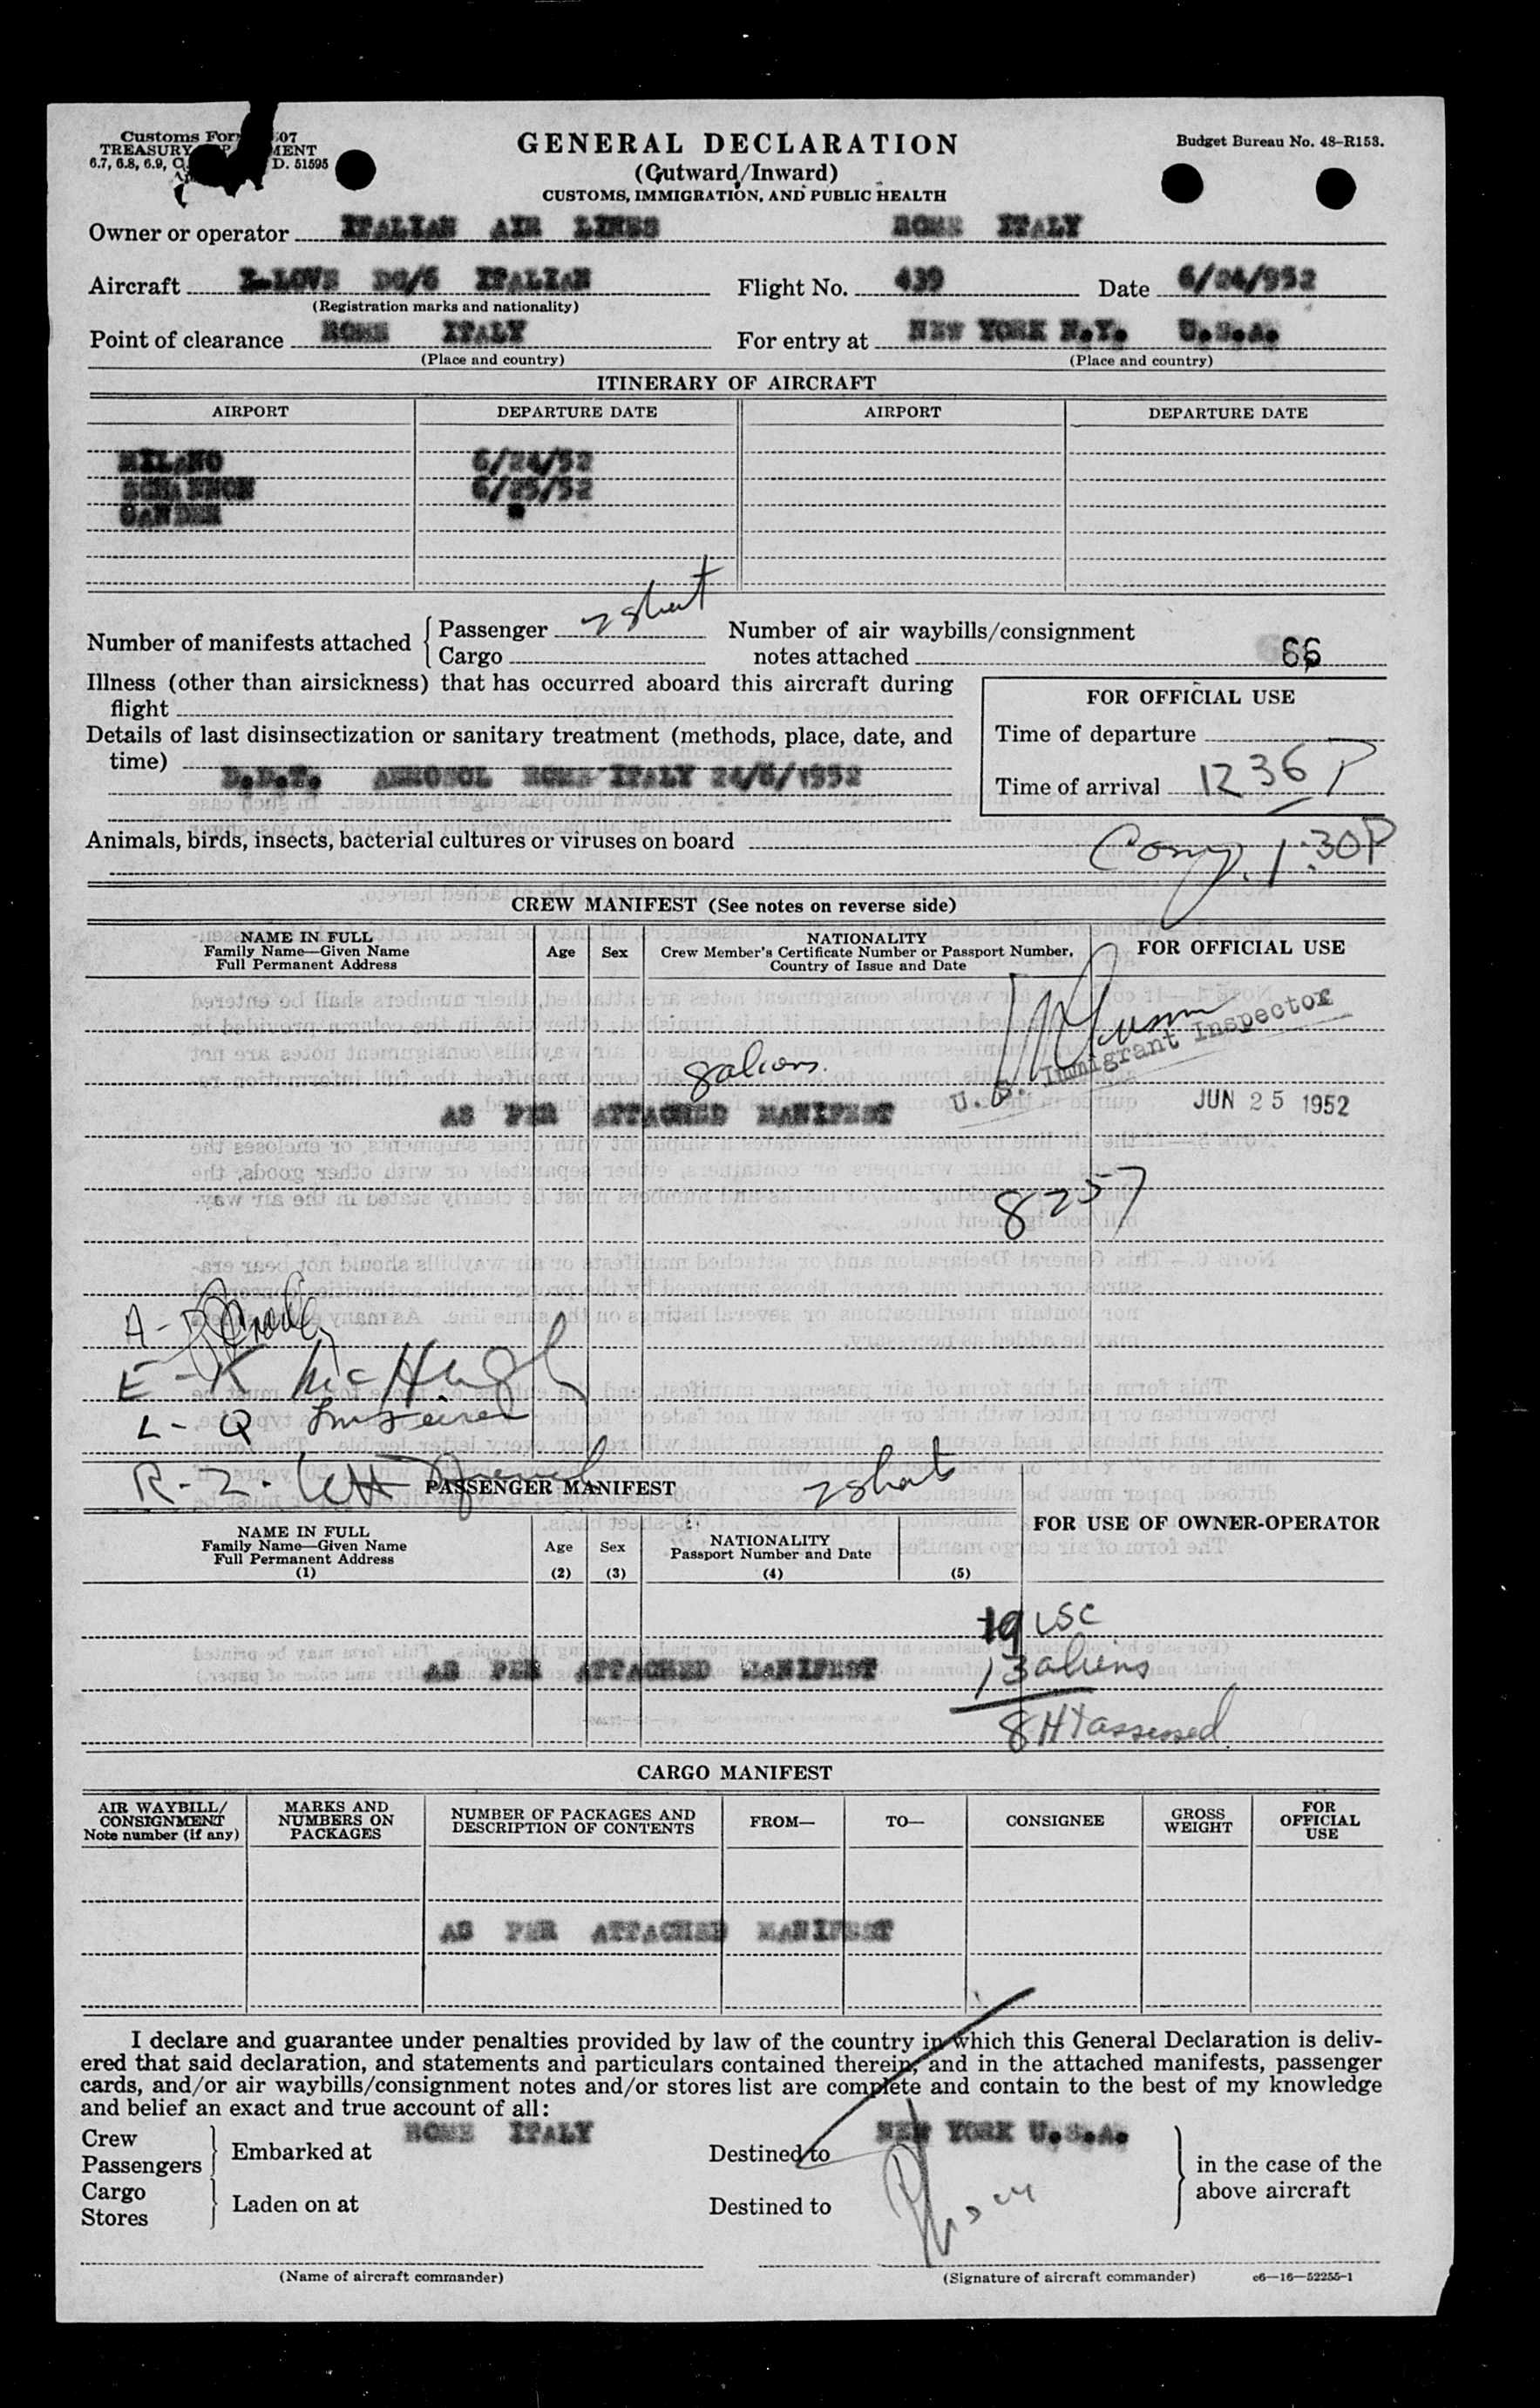 Customs For 507
TREASURY DEPARTMENT
6.7, 6.8, 6.9, C. D. 51595
GENERAL DECLARATION
(Outward/Inward)
CUSTOMS, IMMIGRATION, AND PUBLIC HEALTH
Budget Bureau No. 48-R153.
Owner or operator ITALIAN AIR LINES ROME ITALY
Aircraft I-LOVE DC/6 ITALIAN Flight No. 439 Date 6/24/952
(Registration marks and nationality)
Point of clearance ROME ITALY For entry at NEW YORK N.Y. U.S.A.
(Place and country) (Place and country)
ITINERARY OF AIRCRAFT
AIRPORT DEPARTURE DATE AIRPORT DEPARTURE DATE
MILANO 6/24/52
SCHANNON 6/25/52
GANDER "
Number of manifests attached { Passenger 2 sheet Number of air waybills/consignment
Cargo notes attached 66
Illness (other than airsickness) that has occurred aboard this aircraft during
flight
Details of last disinsectization or sanitary treatment (methods, place, date, and
time)
D.D.T. AEROSOL ROME ITALY 24/6/1952
FOR OFFICIAL USE
Time of departure
Time of arrival 12 36 P
Animals, birds, insects, bacterial cultures or viruses on board
1:30P
CREW MANIFEST (See notes on reverse side)
NAME IN FULL
Family Name—Given Name
Full Permanent Address
Age
Sex
NATIONALITY
Crew Member's Certificate Number or Passport Number,
Country of Issue and Date
FOR OFFICIAL USE
U. S. Immigrant Inspector
8 aliens
AS PER ATTACHED MANIFEST
JUN 25 1952
8257
A-D
E-K McHugh
L-Q
R-Z.
PASSENGER MANIFEST 2 sheets
NAME IN FULL
Family Name—Given Name
Full Permanent Address
(1)
Age
(2)
Sex
(3)
NATIONALITY
Passport Number and Date
(4)
(5)
FOR USE OF OWNER-OPERATOR
19 USC
13 aliens
AS PER ATTACHED MANIFEST
8 HT assessed
CARGO MANIFEST
AIR WAYBILL/
CONSIGNMENT
Note number (if any)
MARKS AND
NUMBERS ON
PACKAGES
NUMBER OF PACKAGES AND
DESCRIPTION OF CONTENTS
FROM—
TO—
CONSIGNEE
GROSS
WEIGHT
FOR
OFFICIAL
USE
AS PER ATTACHED MANIFEST
I declare and guarantee under penalties provided by law of the country in which this General Declaration is deliv-
ered that said declaration, and statements and particulars contained therein, and in the attached manifests, passenger
cards, and/or air waybills/consignment notes and/or stores list are complete and contain to the best of my knowledge
and belief an exact and true account of all:
Crew
Passengers } Embarked at ROME ITALY Destined to NEW YORK U.S.A.
Cargo
Stores } Laden on at Destined to
in the case of the
above aircraft
(Name of aircraft commander) (Signature of aircraft commander) c6—16—52255-1